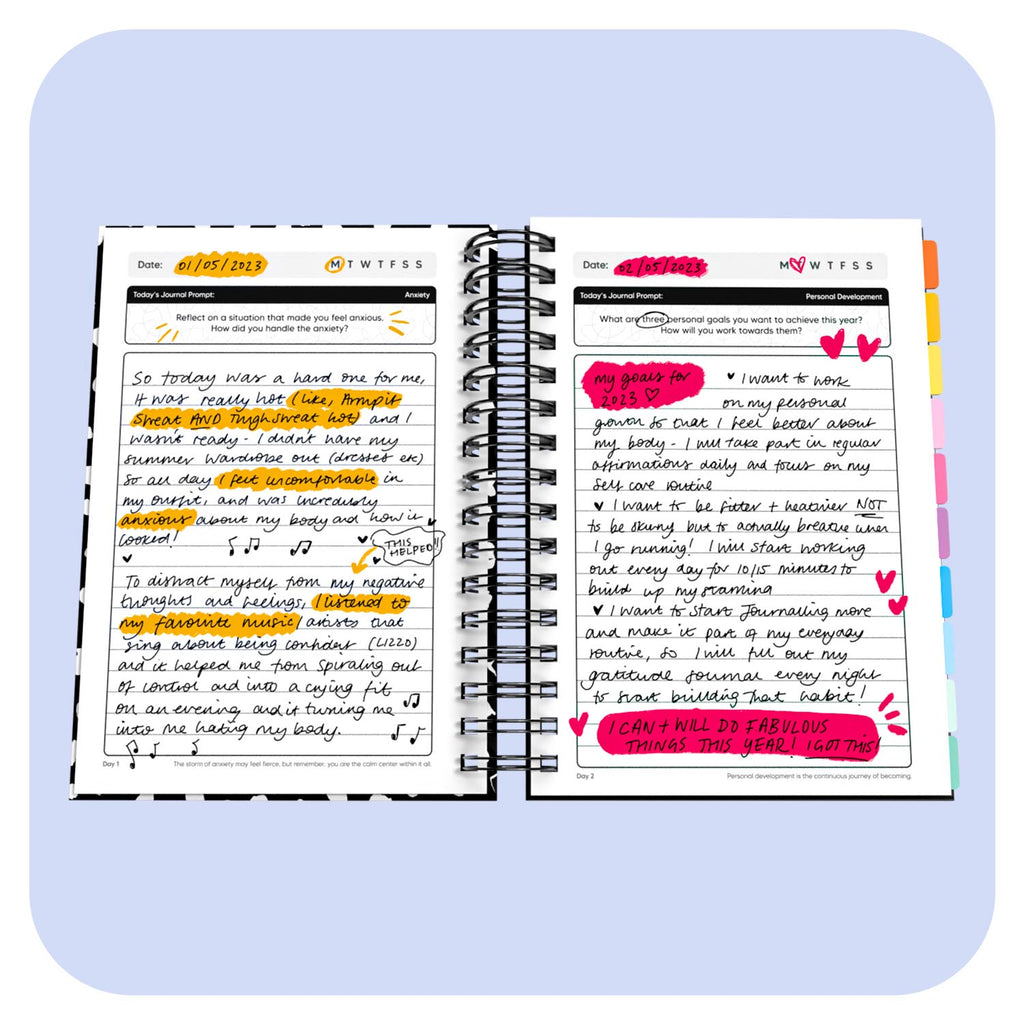 Date: 01/05/2023 M T W T F S S
Today's Journal Prompt: Anxiety
Reflect on a situation that made you feel anxious.
How did you handle the anxiety?
So today was a hard one for me,
it was really hot (like, Armpit
Sweat AND Thigh Sweat hot) and I
wasn't ready - I didn't have my
summer wardrobe out (dresses etc)
So all day I felt uncomfortable in
my outfit, and was incredibly
anxious about my body and how it
looked!
THIS
HELPED!!
To distract myself from my negative
thoughts and feelings, I listened to
my favourite music! artists that
sing about being confident (LIZZO)
and it helped me from spiraling out
of control and into a crying fit
on an evening and it turning me
into me hating my body.
Day 1 The storm of anxiety may feel fierce, but remember, you are the calm center within it all.
Date: 02/05/2023 M T W T F S S
Today's Journal Prompt: Personal Development
What are three personal goals you want to achieve this year?
How will you work towards them?
my goals for
2023
I want to work
on my personal
growth so that I feel better about
my body - I will take part in regular
affirmations daily and focus on my
self care routine
I want to be fitter + healthier NOT
to be skinny but to actually breathe when
I go running! I will start working
out every day for 10/15 minutes to
build up my stamina
I want to start Journalling more
and make it part of my everyday
routine, so I will fill out my
gratitude journal every night
to start building that habit!
I CAN + WILL DO FABULOUS
THINGS THIS YEAR! I GOT THIS!
Day 2 Personal development is the continuous journey of becoming.